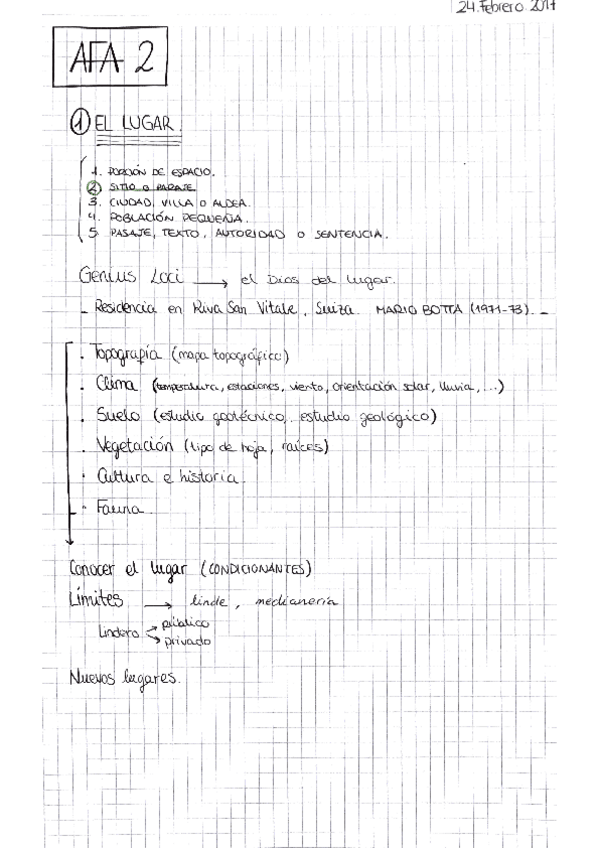 24. Febrero 2017
AFA 2
① EL LUGAR.
1. PORCIÓN DE ESPACIO.
② SITIO O PARAJE
3. CIUDAD, VILLA O ALDEA.
4. POBLACIÓN PEQUEÑA.
5. PASAJE, TEXTO, AUTORIDAD O SENTENCIA.
Genius Loci → el Dios del lugar.
- Residencia en Riva San Vitale, Suiza. MARIO BOTTA (1971-73). -
· Topografía (mapa topográfico)
· Clima (temperatura, estaciones, viento, orientación solar, lluvia, ...)
· Suelo (estudio geotécnico, estudio geológico)
· Vegetación (tipo de hoja, raíces)
· Cultura e historia.
· Fauna.
Conocer el lugar (CONDICIONANTES)
Límites → linde, medianería
Lindero → público
→ privado
Nuevos lugares.